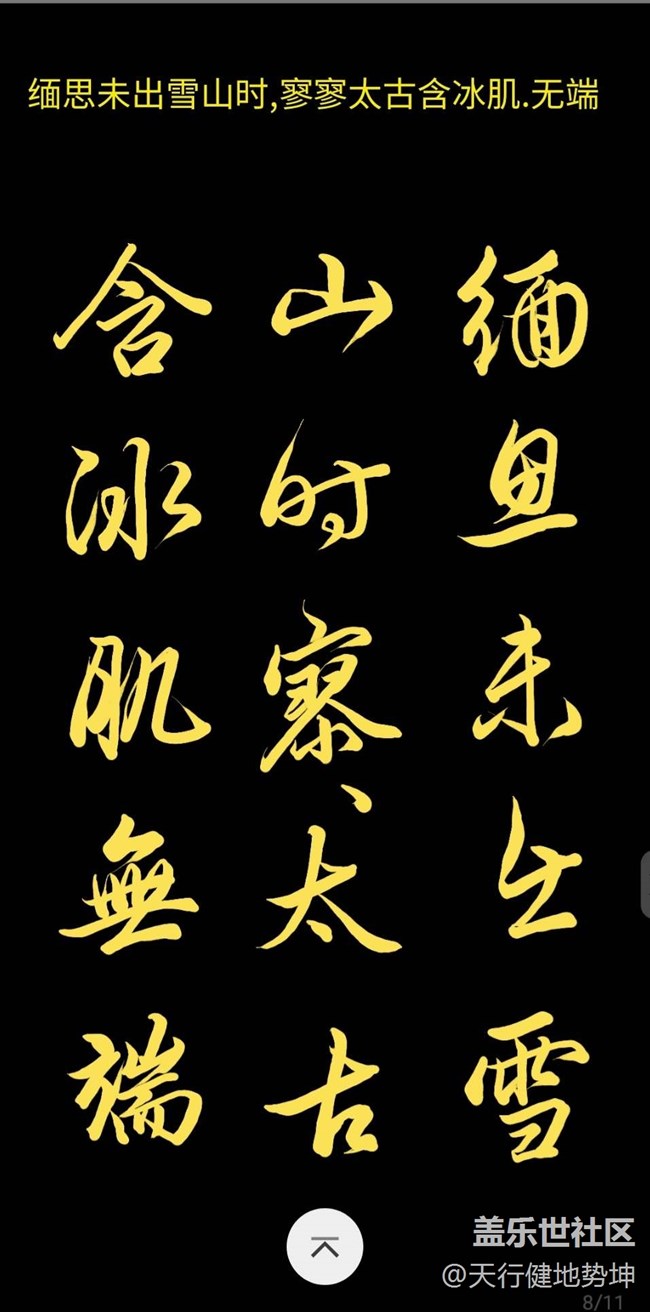 缅思未出雪山时,寥寥太古含冰肌.无端
缅思未出雪
山时寥、太古
含冰肌無端
盖乐世社区
@天行健地势坤
8/11